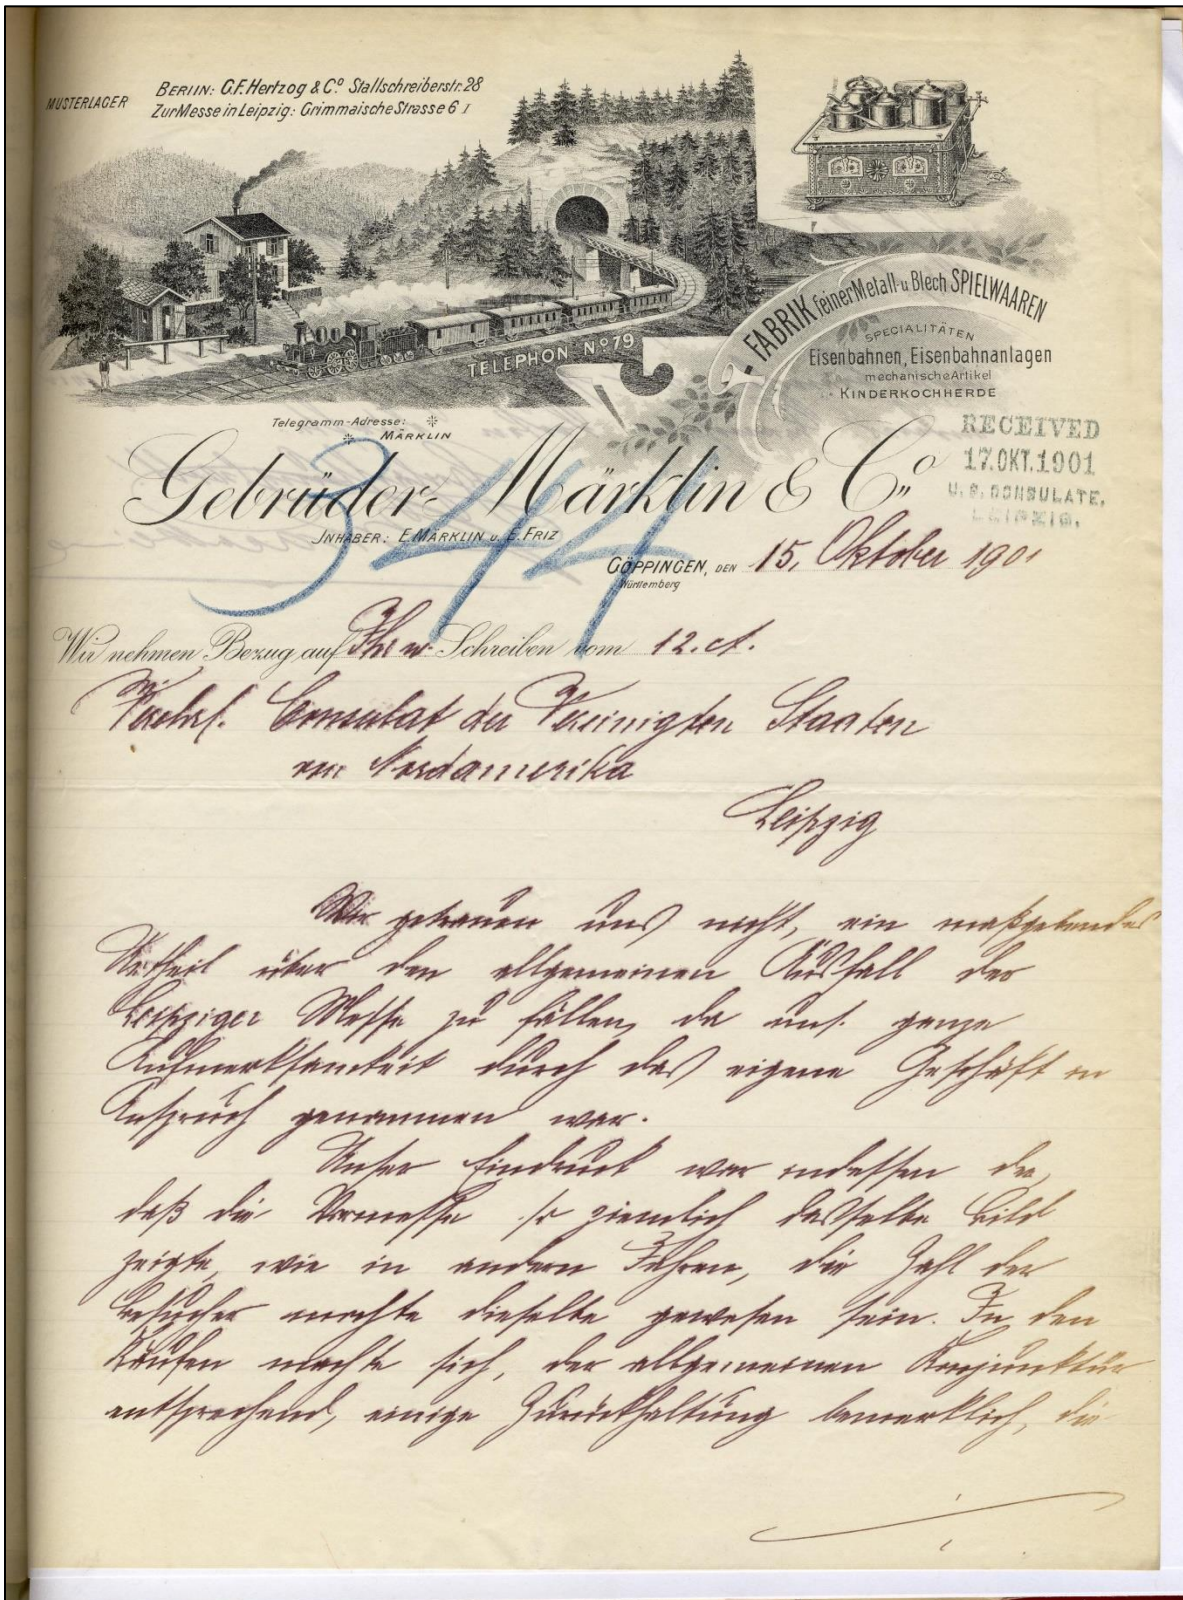 MUSTERLAGER
BERLIN: C.F. Hertzog & Co. Stallschreiberstr. 28
Zur Messe in Leipzig: Grimmaische Strasse 6 I
TELEPHON No 79
FABRIK feiner Metall- u. Blech SPIELWAAREN
SPECIALITÄTEN
Eisenbahnen, Eisenbahnanlagen
mechanische Artikel
KINDERKOCHHERDE
Telegramm-Adresse:
MÄRKLIN
RECEIVED
17. OKT. 1901
U. S. CONSULATE,
LEIPZIG.
Gebrüder Märklin & Co.
344
INHABER: E. MÄRKLIN u. E. FRIZ
GÖPPINGEN, DEN 15. Oktober 1901
Württemberg
Wir nehmen Bezug auf Ihr w. Schreiben vom 12. ct.
Verehrl. Consulat der Vereinigten Staaten
von Nordamerika
Leipzig
Wir getrauen uns nicht, ein maßgebendes
Urtheil über den allgemeinen Ausfall der
Leipziger Messe zu fällen, da uns. ganze
Aufmerksamkeit durch das eigene Geschäft in
Anspruch genommen war.
Unser Eindruck war indessen der,
daß die Vormesse so ziemlich dasselbe Bild
zeigte, wie in andern Jahren, die Zahl der
Besucher mochte dieselbe gewesen sein. In den
Käufen machte sich, der allgemeinen Konjunktur
entsprechend, einige Zurückhaltung bemerklich, die